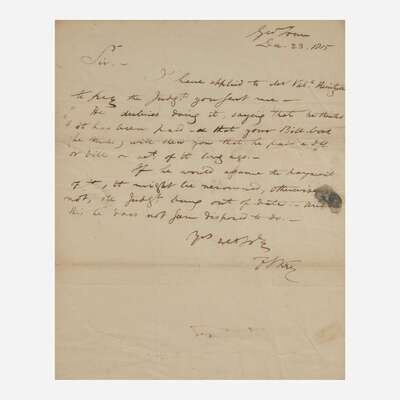 Geo Town
Dec. 23. 1815
Sir. —
I have applied to Mr Val. Reintzel
to pay the Judgt you sent me —
He declines doing it, saying that he thinks
it has been paid — & that your Bill book
he thinks, will shew you that he paid a
or bill on acct. of it long ago. —
If he would assume the payment
of it, it might be renewed, otherwise
not, the Judgt being out of date — and
this he does not seem disposed to do. —
Yr Obt Sr
F S Key